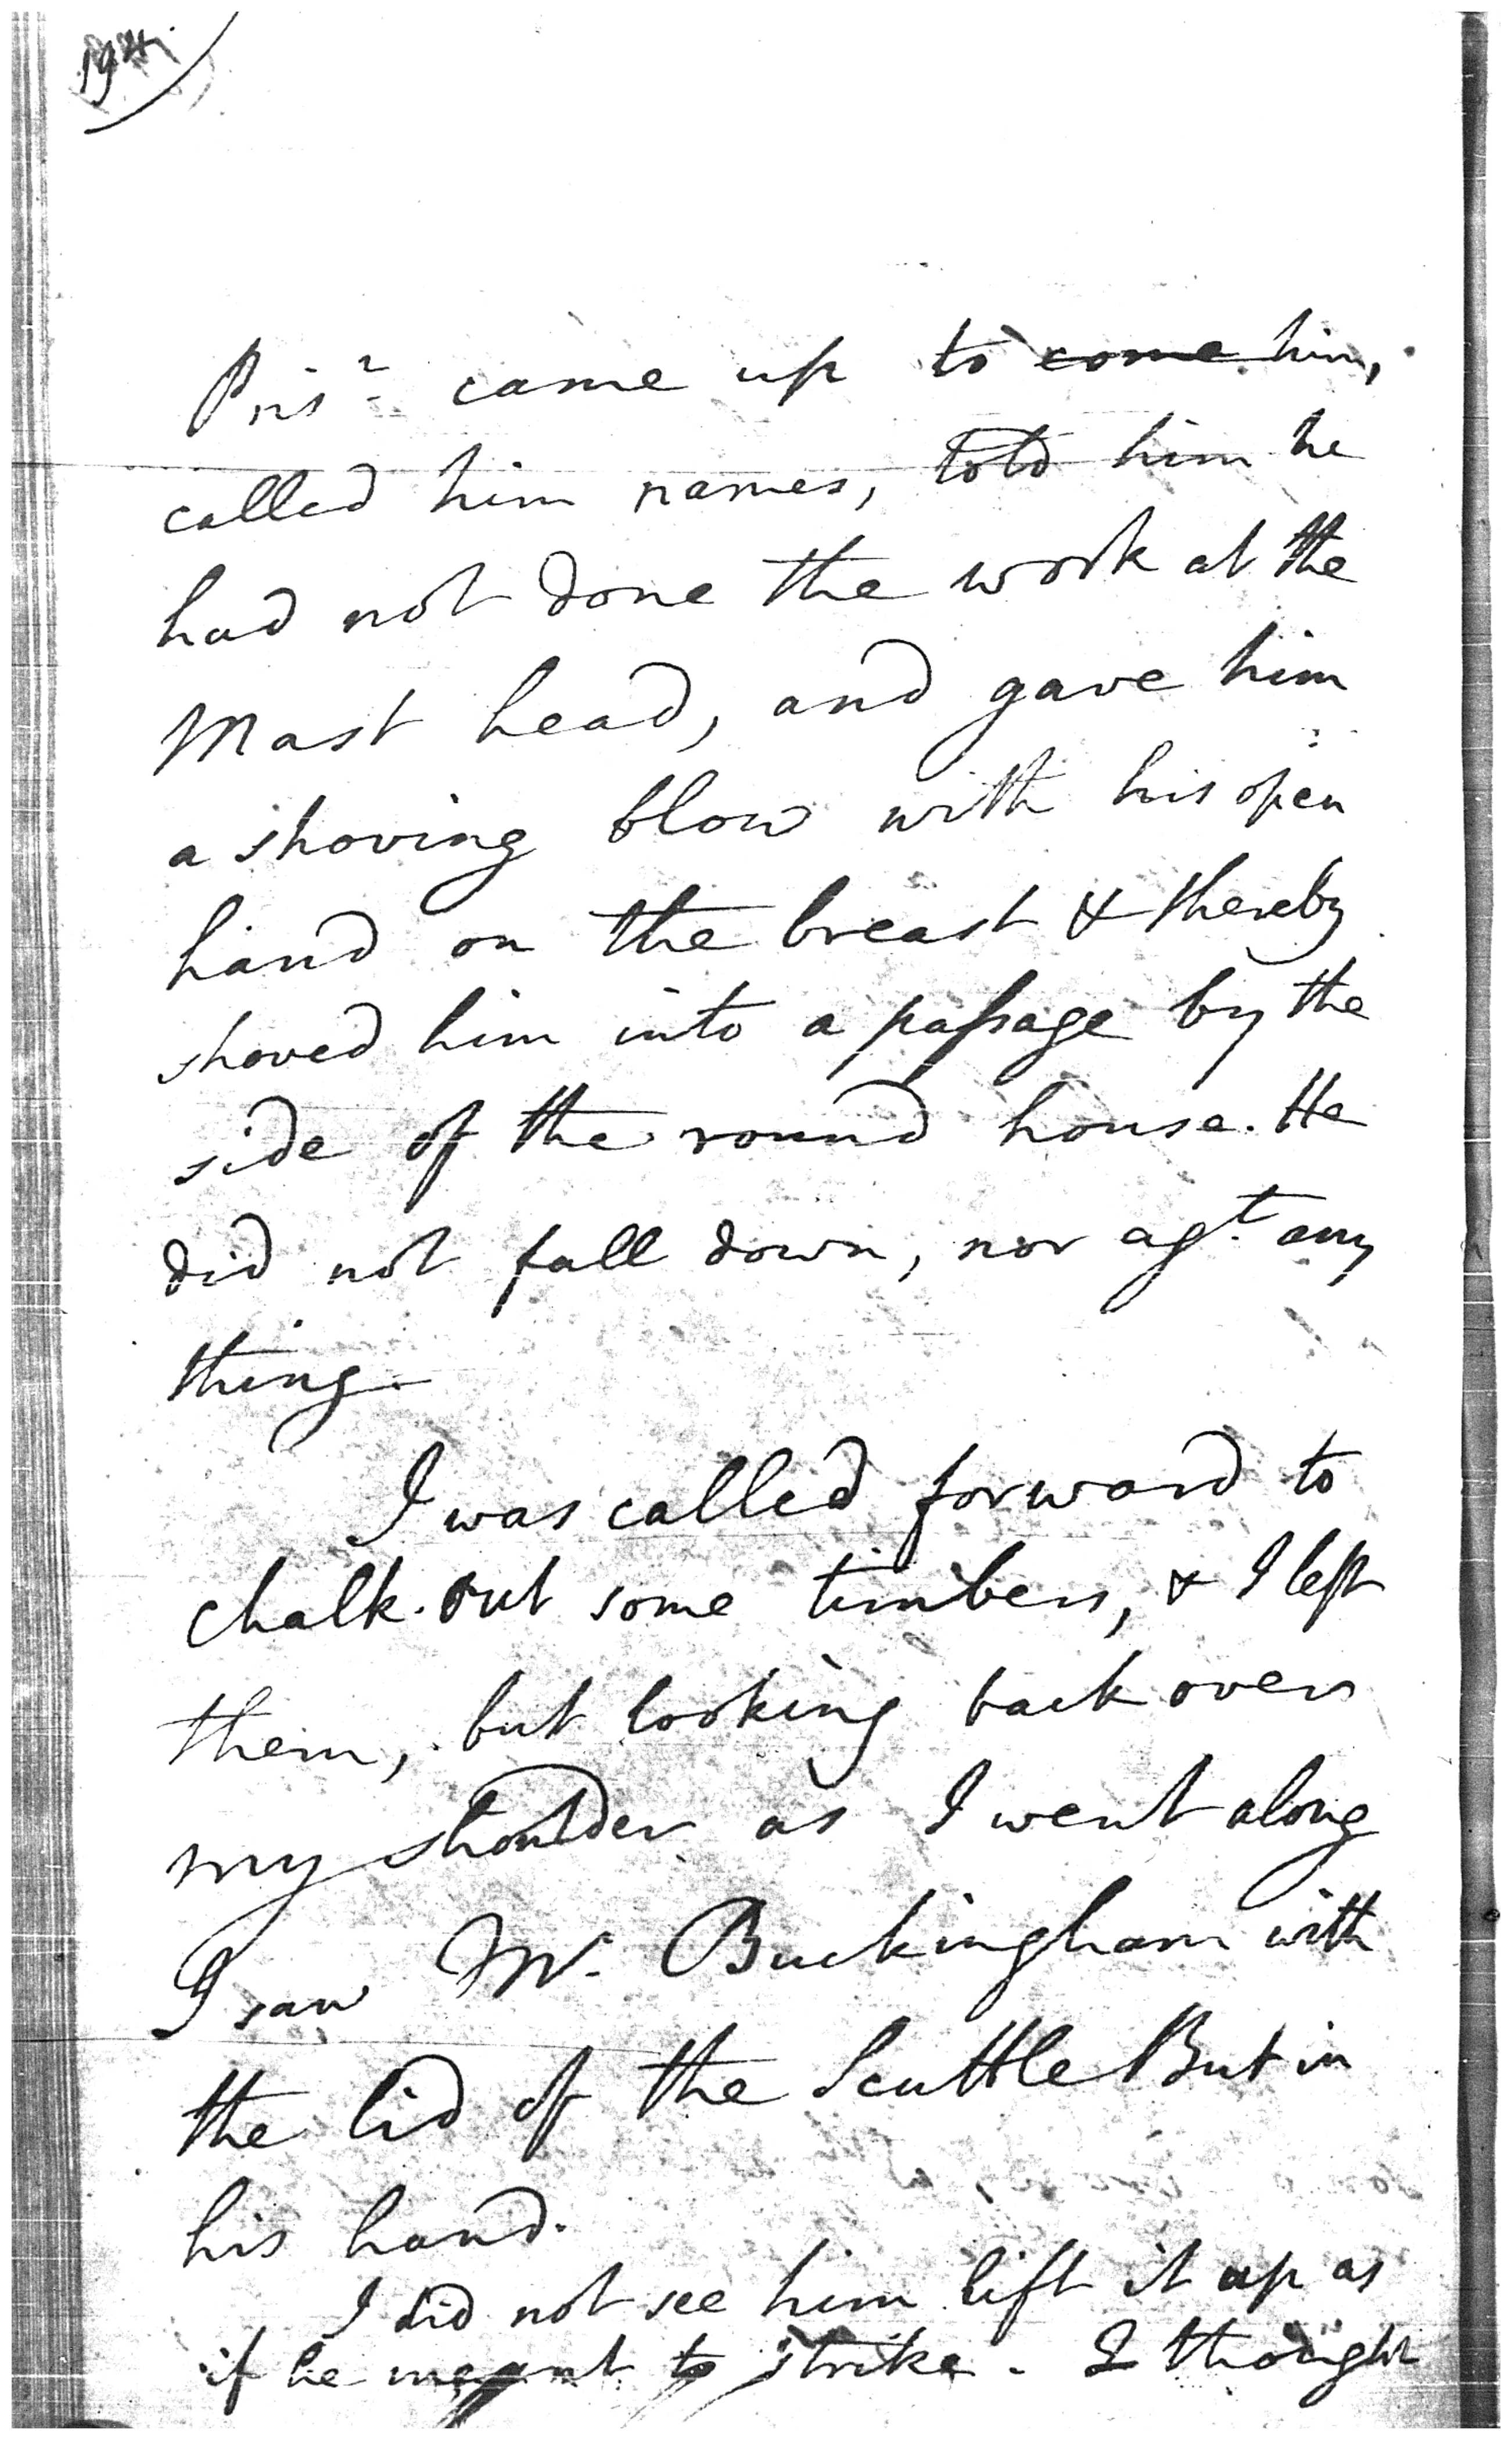 Pris.r came up to come him,
called him names, told him he
had not done the work at the
Mast head, and gave him
a shoving blow with his open
hand on the breast & thereby
shoved him into a paſsage by the
side of the round house. He
did not fall down, nor agt. any
thing.
I was called forward to
chalk out some timbers, & I left
them, but looking back over
my shoulder as I went along
I saw Mr. Buckingham with
the lid of the Scuttle But in
his hand.
I did not see him lift it up as
if he meant to strike. I thought